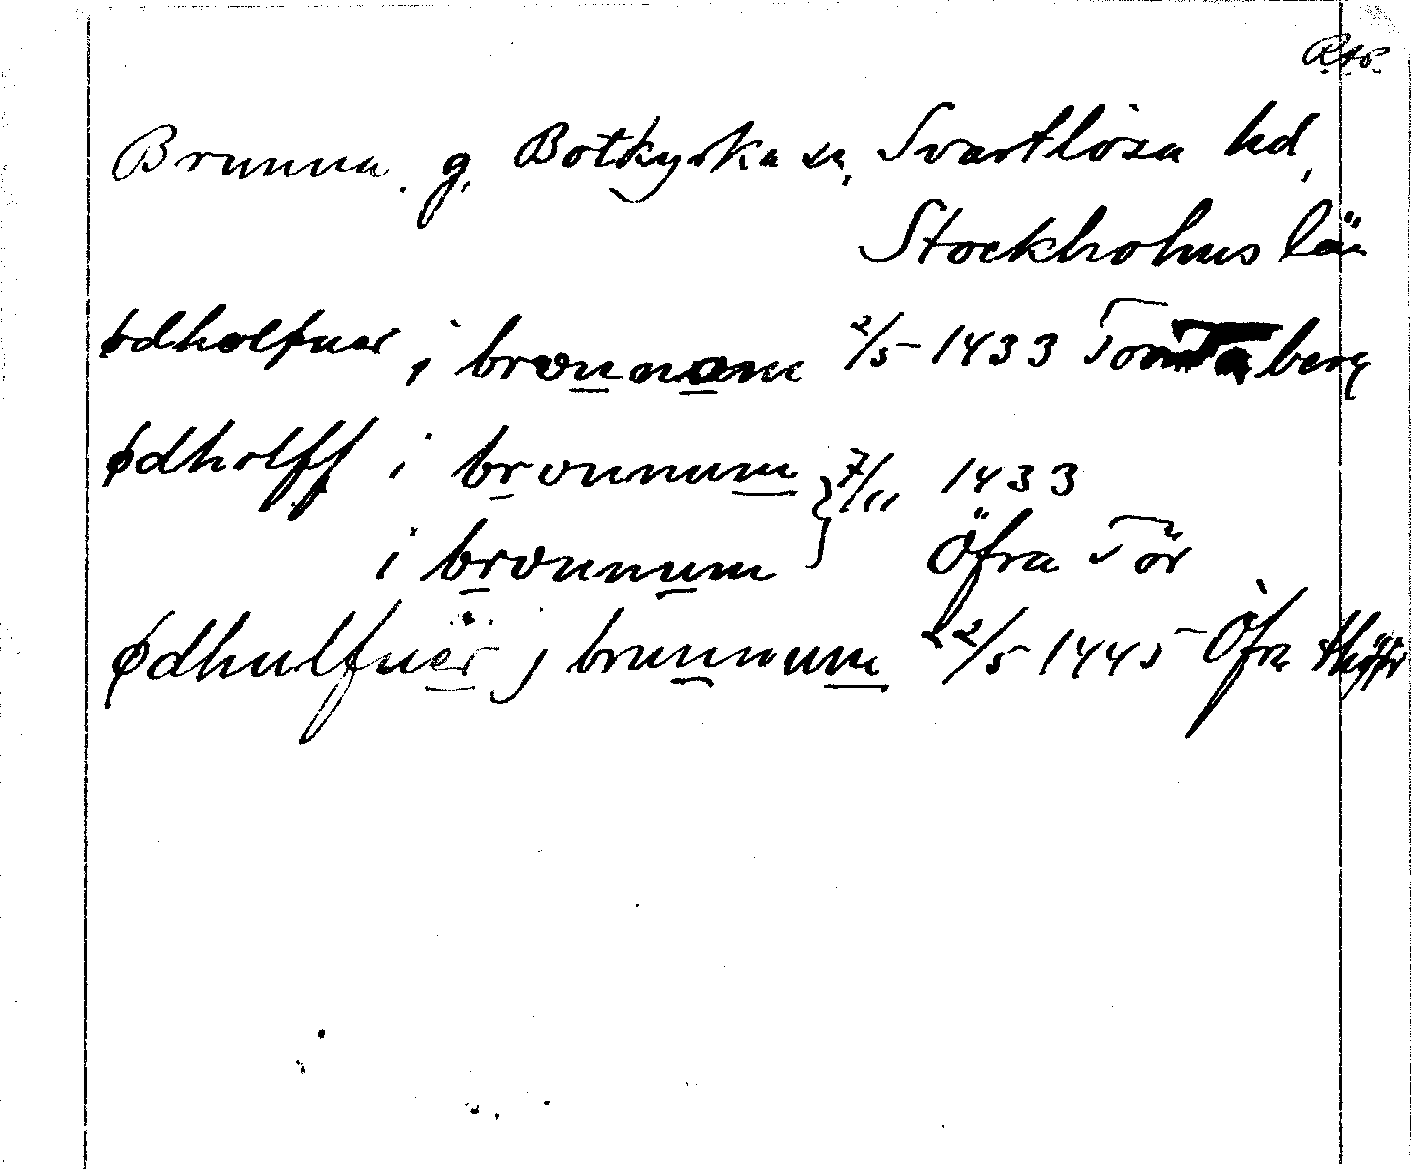 RAP.
Brunna. g. Botkyrka sn, Svartlösa hd,
Stockholms län
ødholfuer i bronnom 2/5 1433 Tomtaberg
ødholff i bronnum } 7/11 1433
i bronnum } Öfra Tör
ødhulfuer j brunnum 22/5 1445 Öfra